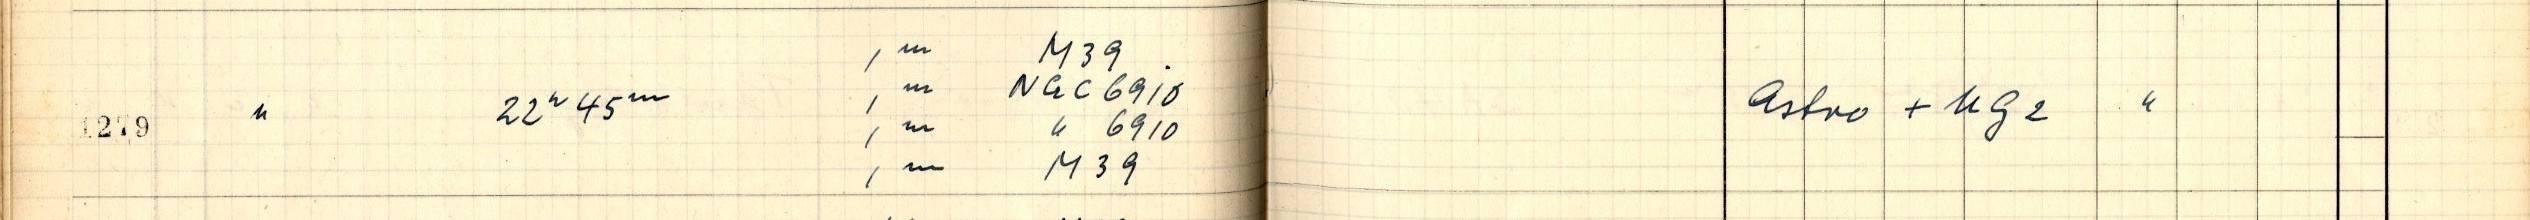 1 m M39
1 m NGC 6910
1279 " 22h 45m Astro + UG2 "
1 m " 6910
1 m M39